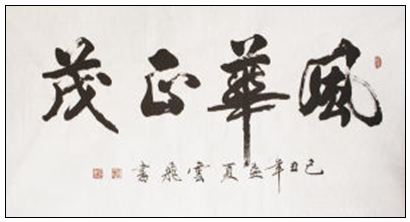 風華正茂
己丑年孟夏雲飛書